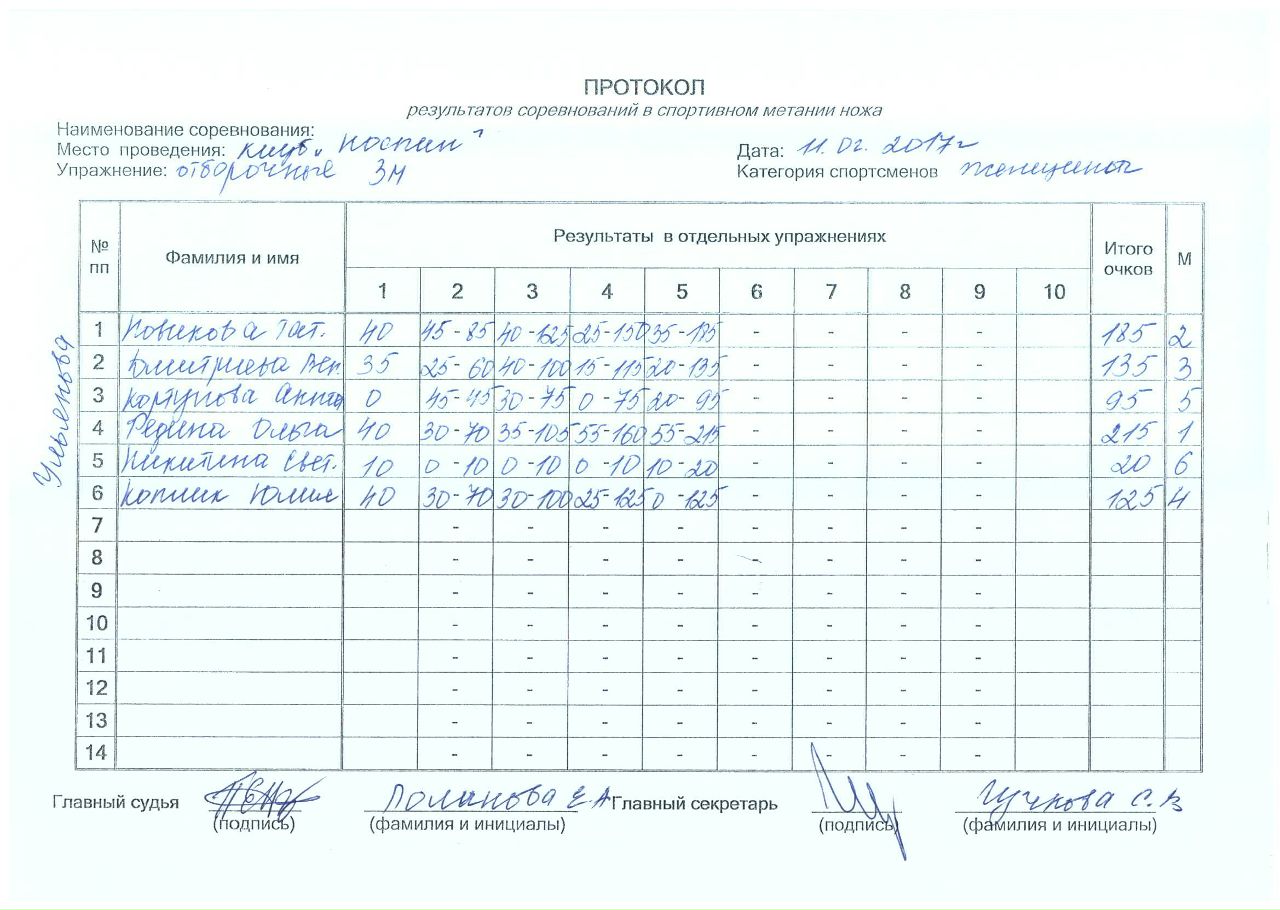 ПРОТОКОЛ
результатов соревнований в спортивном метании ножа
Наименование соревнования:
Место проведения: клуб
Дата: 11.02. 2017г
Упражнение: отборочные 3м
Категория спортсменов женщины
№ пп Фамилия и имя Результаты в отдельных упражнениях Итого очков М
1 2 3 4 5 6 7 8 9 10
1 Новикова Тат. 40 45-85 40-125 25-150 35-185 - - - - 185 2
2 Дмитриева 35 25-60 40-100 15-115 20-135 - - - - 135 3
3 Кортунова Анна 0 45-45 30-75 0-75 20-95 - - - - 95 5
4 Редина Ольга 40 30-70 35-105 55-160 55-215 - - - - 215 1
5 Никитина Свет. 10 0-10 0-10 0-10 10-20 - - - - 20 6
6 Коплик Юлия 40 30-70 30-100 25-125 0-125 - - - - 125 4
7 - - - - - - - -
8 - - - - - - - -
9 - - - - - - - -
10 - - - - - - - -
11 - - - - - - - -
12 - - - - - - - -
13 - - - - - - - -
14 - - - - - - - -
Ульянова
Главный судья Ломанова Е А Главный секретарь Гучкова С.В
(подпись) (фамилия и инициалы) (подпись) (фамилия и инициалы)